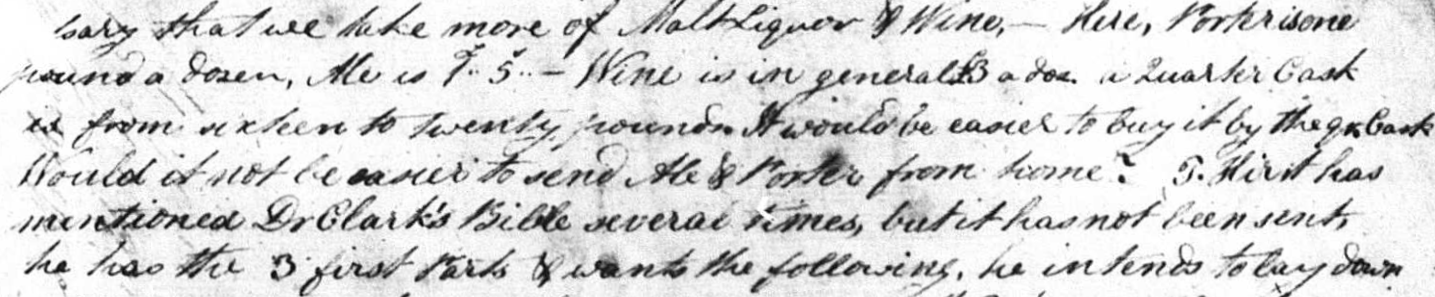 sary that we take more of Malt Liquor & Wine, — Here, Porter is one
pound a dozen, Ale is 1.. 5.. — Wine is in general £3 a doz. a Quarter Cask
is from sixteen to twenty pounds It would be easier to buy it by the qr Cask
Would it not be easier to send Ale & Porter from home? T. Hirst has
mentioned Dr Clark's Bible several times, but it has not been sent,
he has the 3 first Parts & wants the following, he intends to lay down